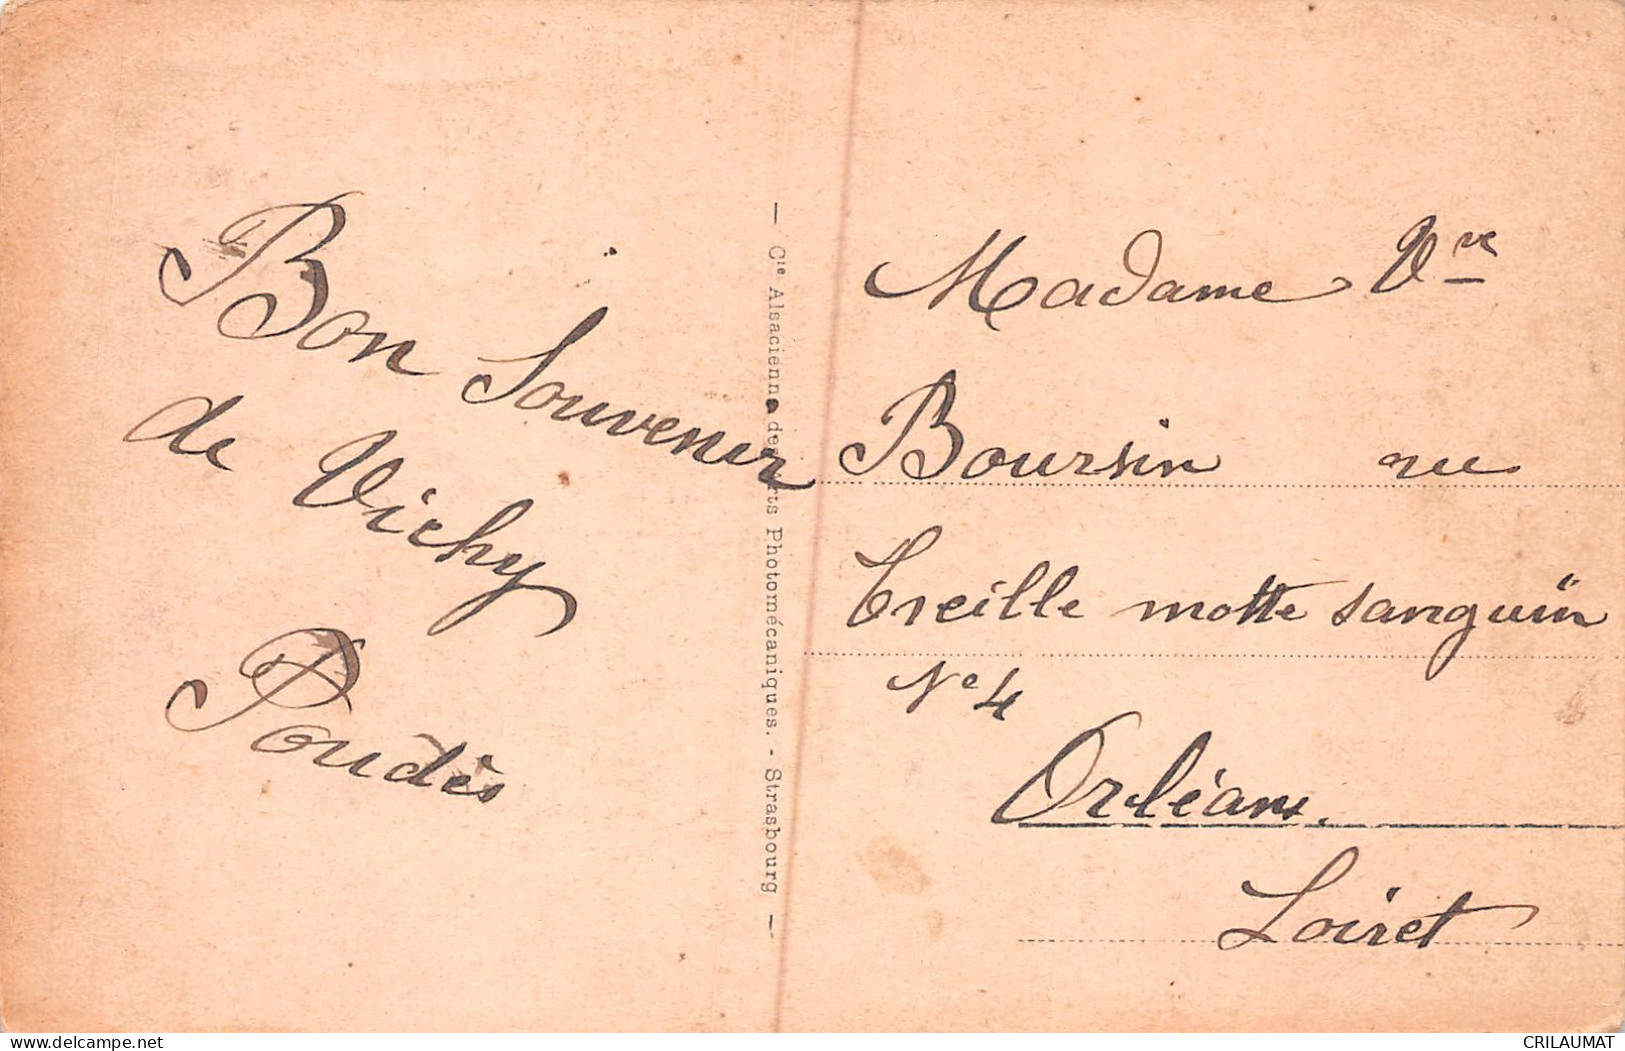 Bon Souvenir
de Vichy
Poudès
— Cie Alsacienne des Arts Photomécaniques. - Strasbourg —
Madame Vve
Boursin rue
Treille motte sanguin
No 4
Orléans.
Loiret
www.delcampe.net
CRILAUMAT